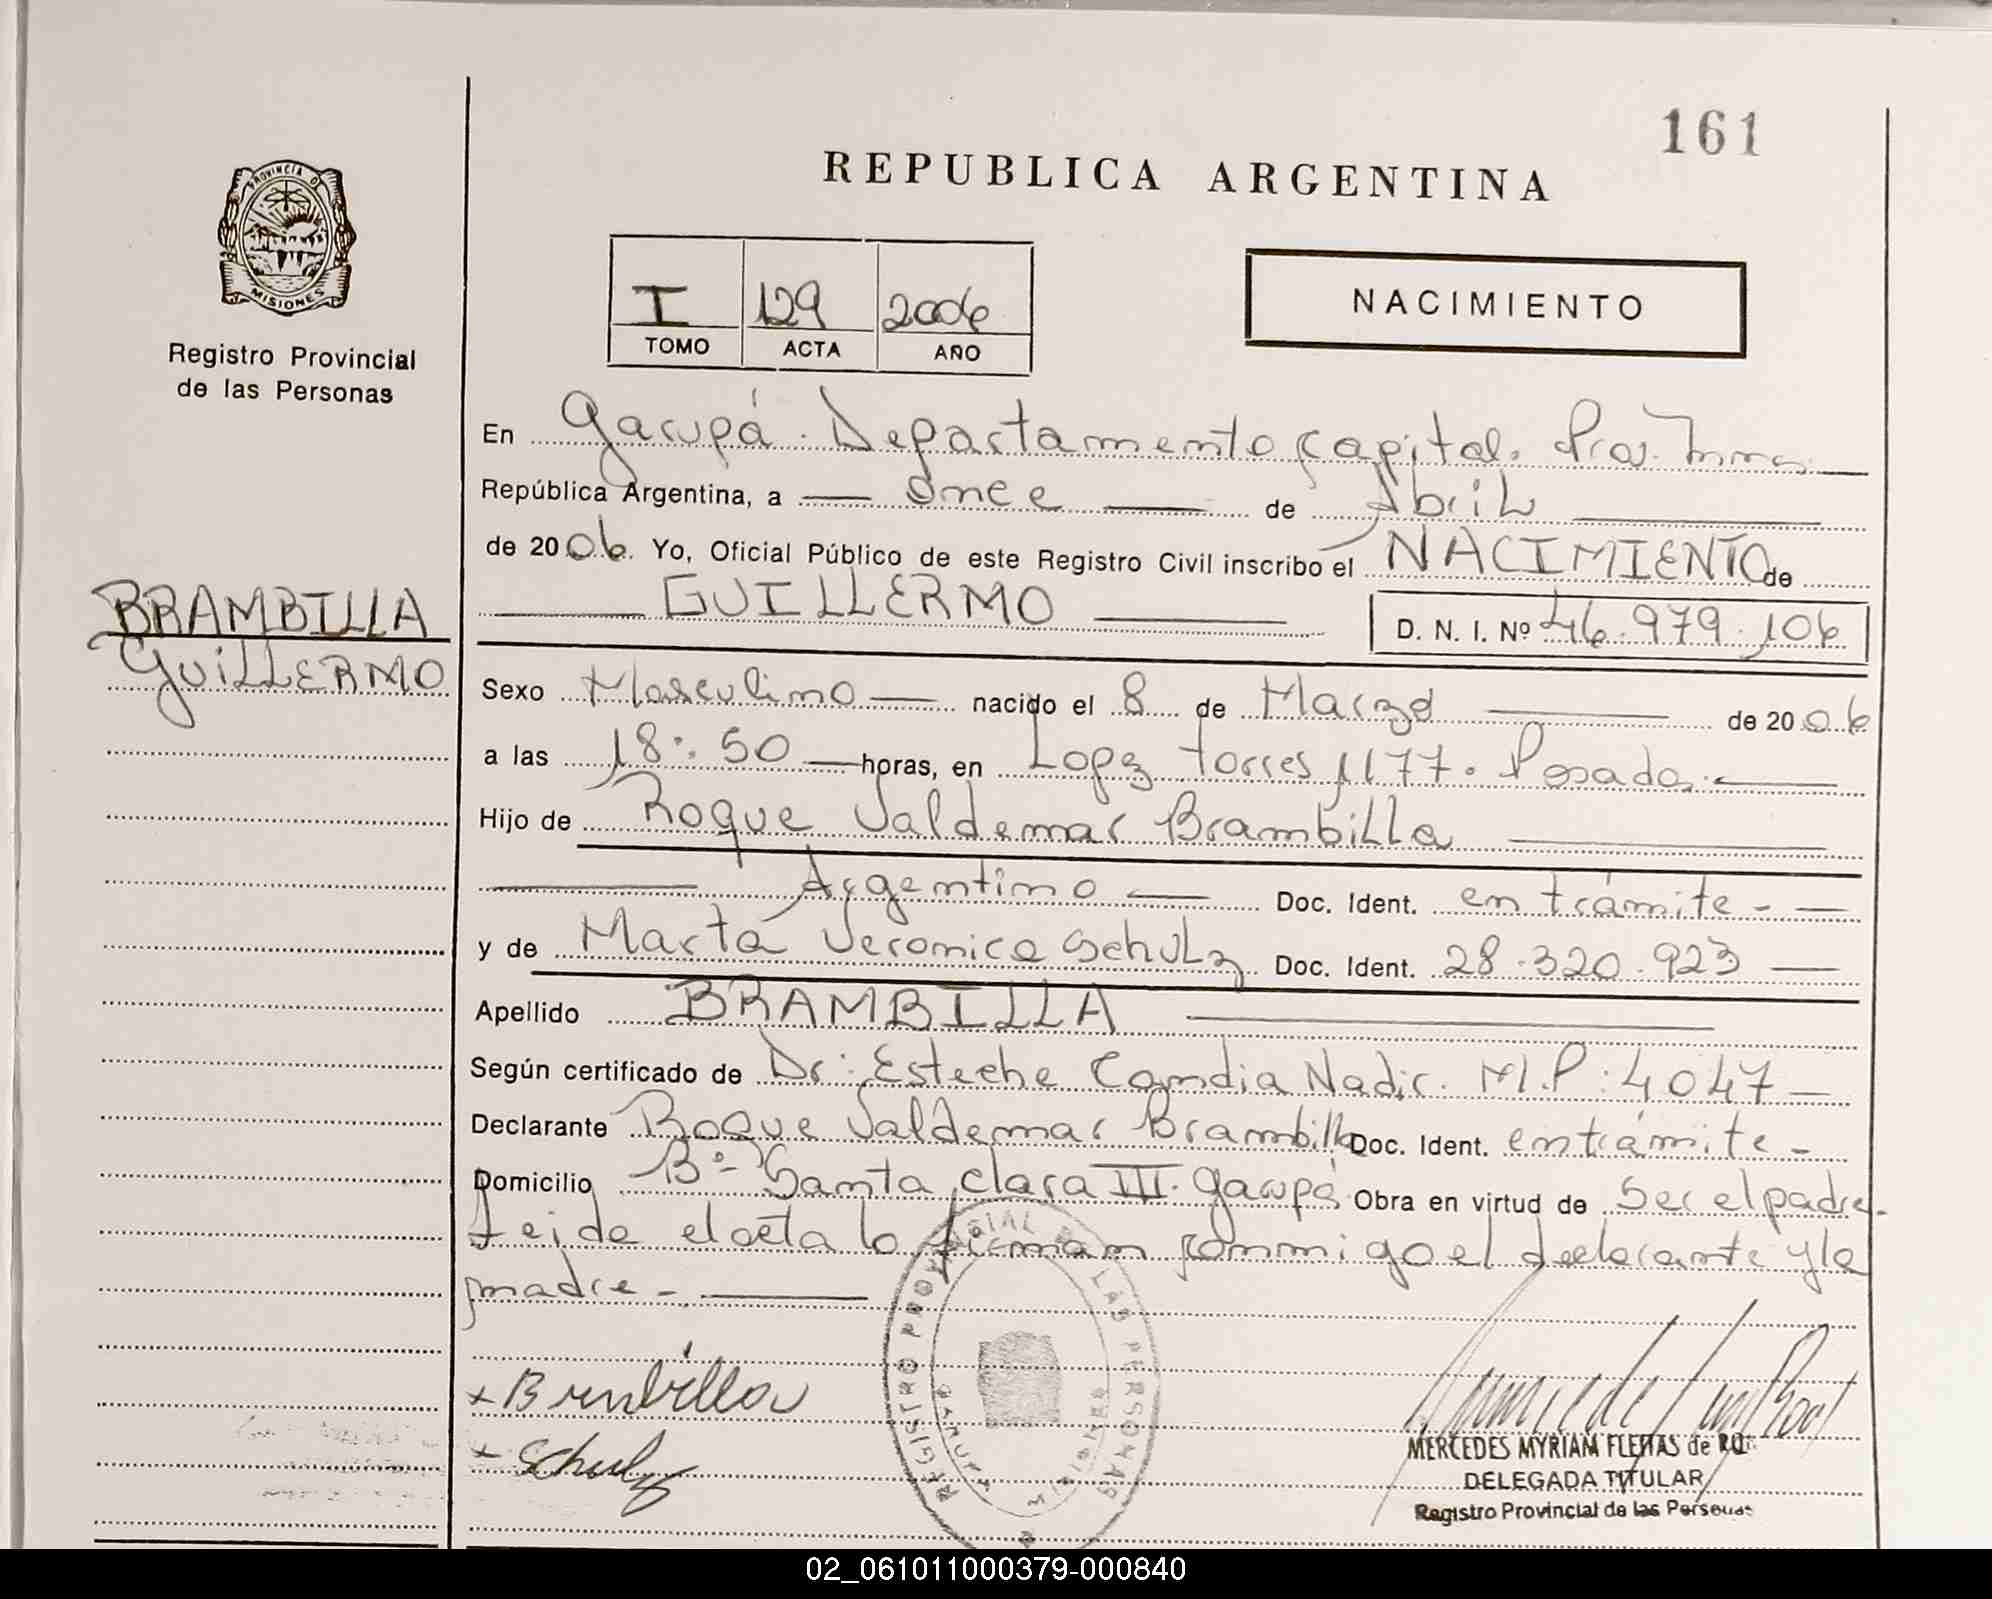 161
REPUBLICA ARGENTINA
PROVINCIA DE
MISIONES
Registro Provincial
de las Personas
I 129 2006
TOMO ACTA AÑO
NACIMIENTO
En Garupá. Departamento Capital. Prov. Mnes.
República Argentina, a once de Abril
de 2006. Yo, Oficial Público de este Registro Civil inscribo el NACIMIENTO de
GUILLERMO D. N. I. Nº 46.979.106
BRAMBILLA
GUILLERMO
Sexo Masculino nacido el 8 de Marzo de 2006
a las 18:50 horas, en Lopez Torres 1177. Posadas.
Hijo de Roque Valdemar Brambilla
Argentino Doc. Ident. en trámite -
y de Marta Veronica Schulz Doc. Ident. 28.320.923
Apellido BRAMBILLA
Según certificado de Dr: Esteche Candia Nadir. M.P: 4047
Declarante Roque Valdemar Brambilla Doc. Ident. en trámite -
Domicilio Bº- Santa Clara III. Garupá Obra en virtud de ser el padre.
Leida el acta lo firman conmigo el declarante y la
madre -
REGISTRO PROVINCIAL DE LAS PERSONAS
GARUPA MISIONES
x Brambilla
x Schulz
MERCEDES MYRIAM FLEITAS de
DELEGADA TITULAR
Registro Provincial de las Personas
02_061011000379-000840